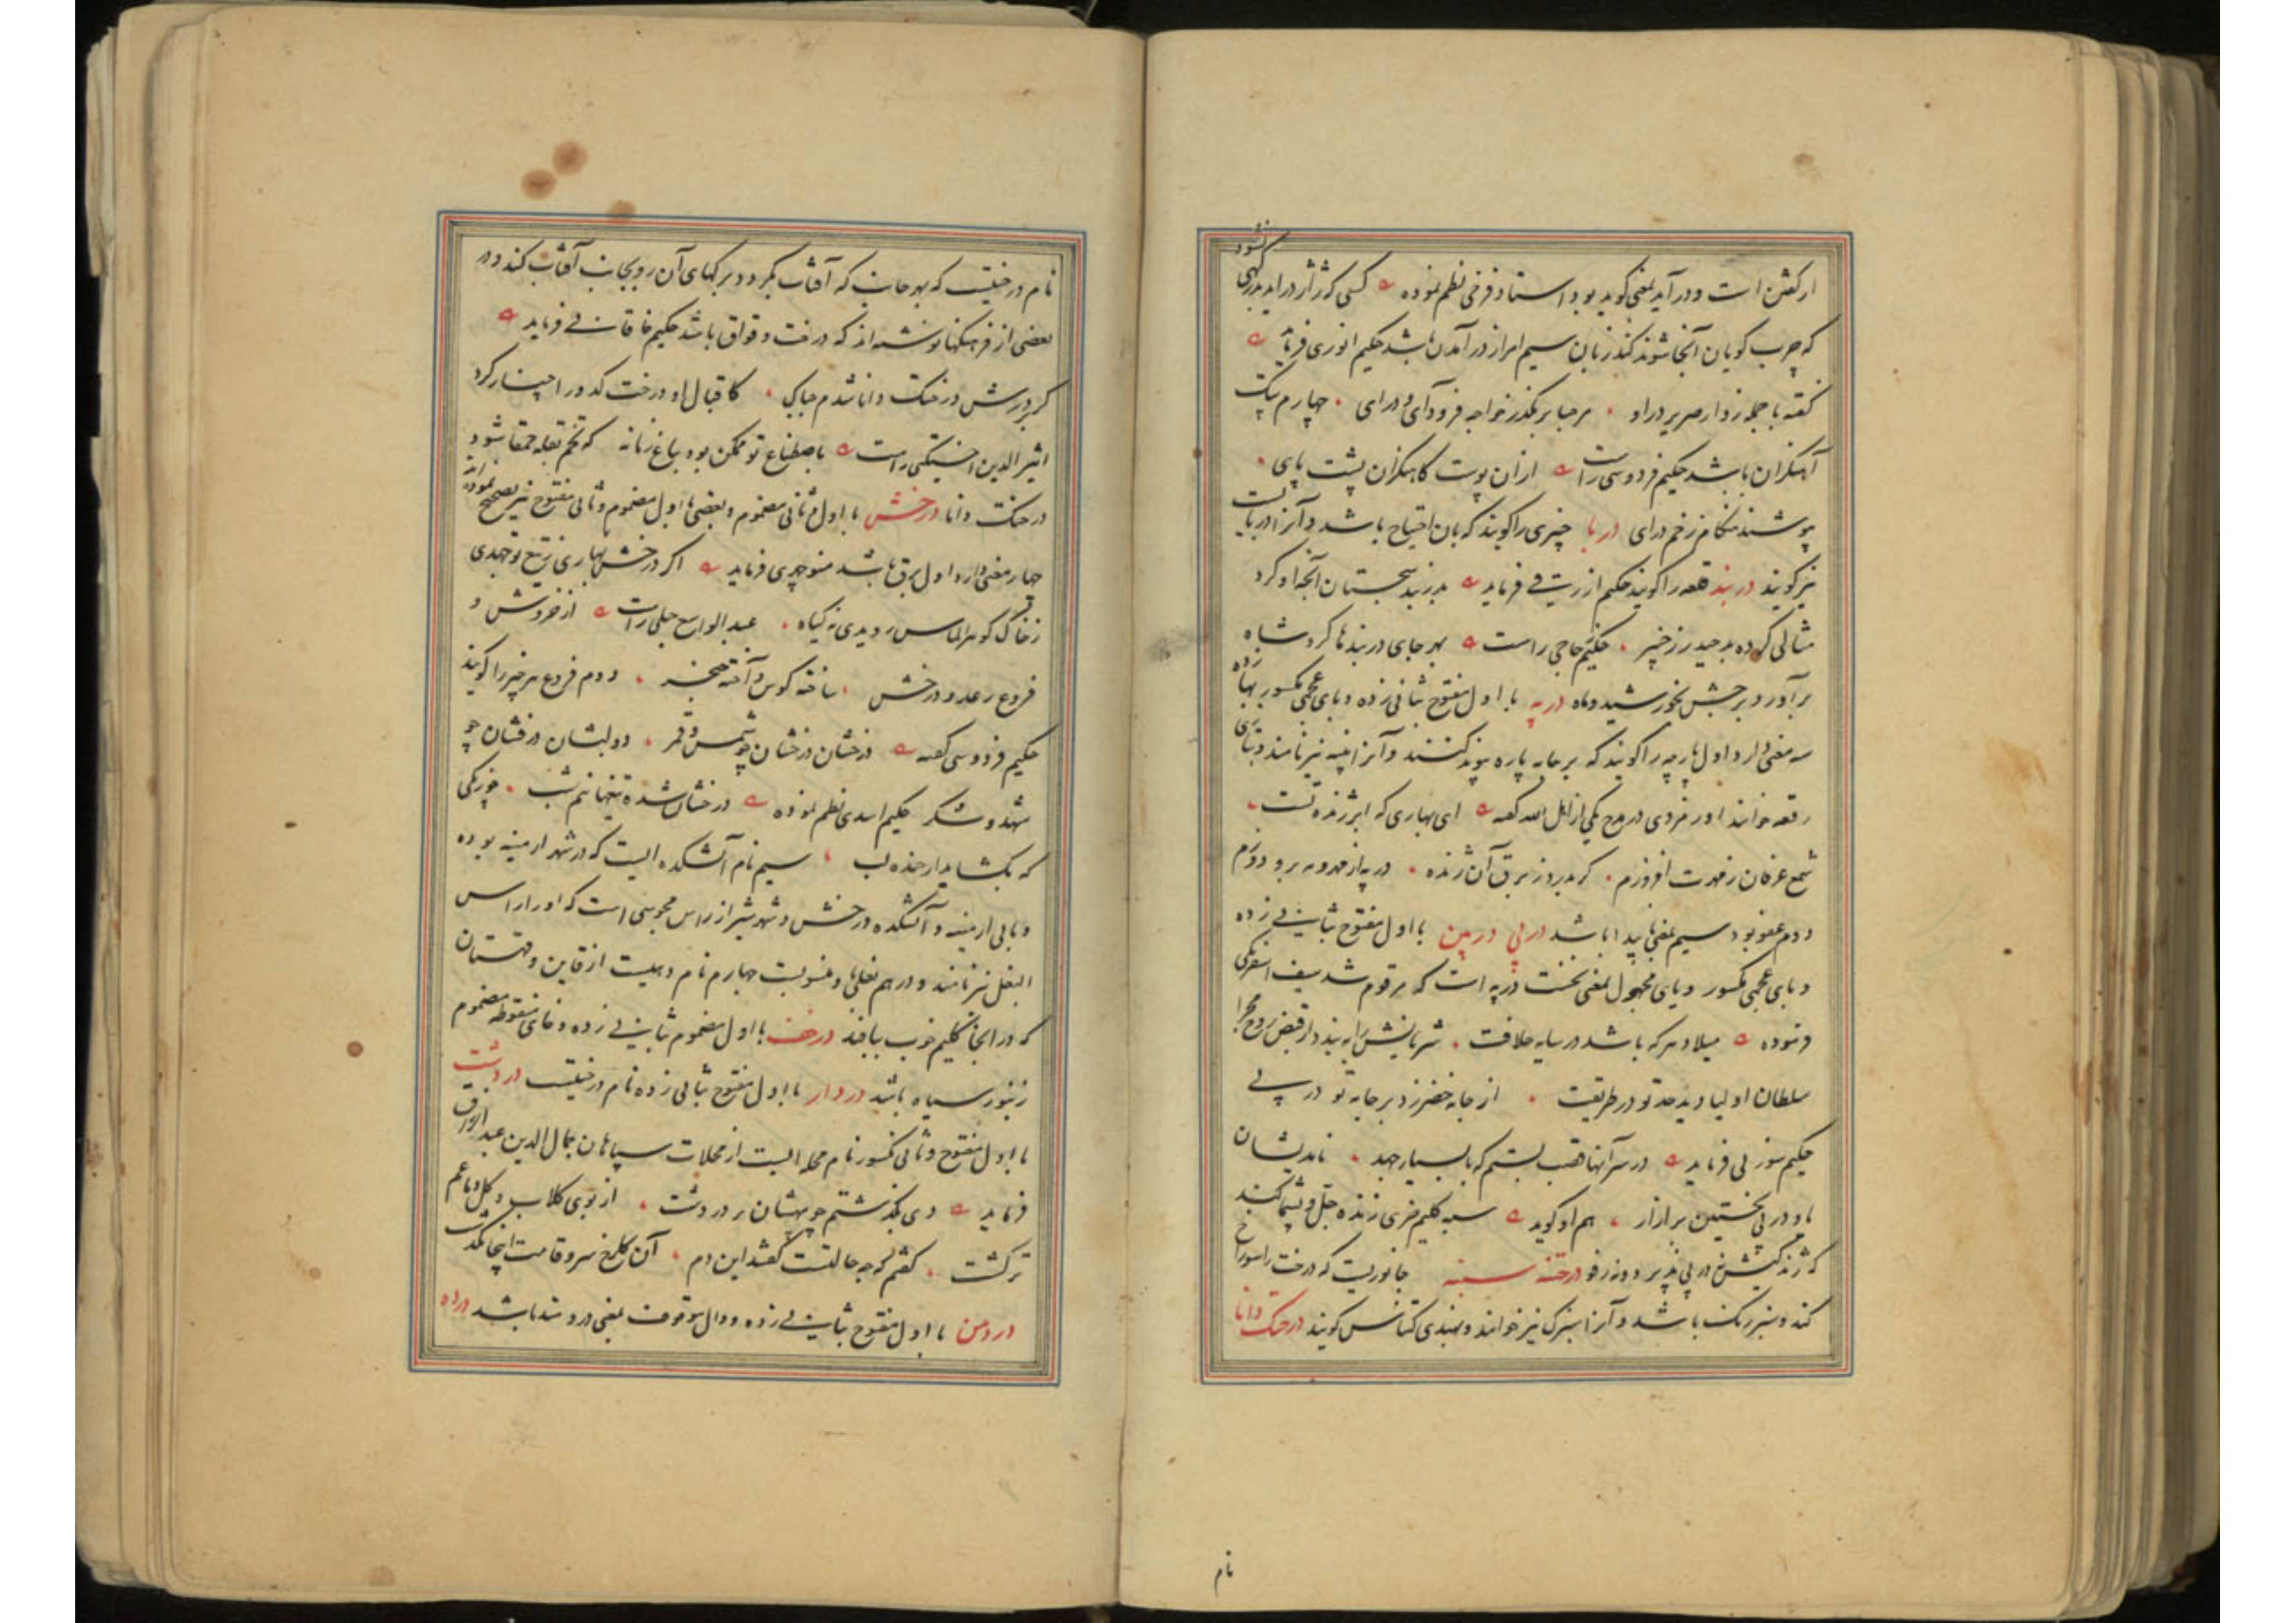 از گفتن است و در آید بمعنی گوید بود استاد فرخی نظم نموده کسی که ژاژ دراید بدرگهی نشود
که چرب گویان آنجا شوند کند زبان سیم امر از در آمدن باشد حکیم انوری فرماید
گفته با جمله زوار صریر در او مرحبا بر مگذر خواجه فرود آی و درای چهارم پتک
آهنگران باشد حکیم فردوسی راست ازان پوست کاهنگران پشت پای
پوشند هنگام زخم درای دربا چیزی را گویند که بان احتیاج باشد و آنرا دربایست
نیز گویند دربند قلعه را گویند حکیم ازرقی فرماید بدربند سجستان آنچه او کرد
مثالی کرده بد حیدر ز خیبر حکیم حاجی راست بهر جای دربندها کرد شاه
برآورد برجش بخورشید و ماه درپه با اول مفتوح بثانی زده و بای عجمی مکسور بها زده
سه معنی دارد اول پارچه را گویند که بر جامه پاره پیوند کنند و آنرا پینه نیز نامند و بتازی
رقعه خوانند اورمزدی در مدح یکی از اهل الله گفته ای بهاری که ابر ژنده تست
شمع عرفان ز مهرت افروزم گر بدرد ز برق آن ژنده درپه از مه و مهر برو دوزم
دوم عفو بود سیم بمعنی باید اما باشد درپی درپین با اول مفتوح بثانی زده
و بای عجمی مکسور و یای مجهول بمعنی نخست درپه است که مرقوم شد سیف اسفرنگی
فرموده میلاد هر که باشد در سایه خلافت شریانش را به بیند از قبض روح مجرا
سلطان اولیا دید حد تو در طریقت از جامه خضر زد بر جامه تو درپی
حکیم سوزنی فرماید در سرآنها هب بستم که با بسیار جهد ماند یشان
ماو درپی نخستین بر ازار هم او گوید سیه گلیم خری ژنده جل و پشماگند
که ژندکیش نه درپی پذیرد و نه رفو درختنه سنبه جانوریست که درخت را سوراخ
کند و سبز رنگ باشد و آنرا سبزک نیز خوانند و بهندی کتاس گویند درختک دانا
نام
نام درختیست که بهر جانب که آفتاب بگردد برگهای آن رو بجانب آفتاب کند و در
بعضی از فرهنگها نوشته اند که درخت وقواق باشد حکیم خاقانی فرماید
گر بردرش درختک دانا شدم چابکی کاقبال او درخت کدو را چنار کرد
اثیر الدین اخسیکتی راست باصطناع تو ممکن بود بباغ زمانه که تخم بقله حمقا شود
درختک دانا درخش با اول و ثانی مضموم و بعضی با اول مضموم و ثانی مفتوح نیز تصحیح نموده اند
چهار معنی دارد اول برق باشد منوچهری فرماید اگر درخش بهاری ز تیغ تو جهدی
ز خاک گوهر الماس رویدی نه گیاه عبد الواسع جبلی راست از خروش و
فروغ رعد و درخش ساخته کوس و آخته خنجر دوم فروغ هر چیز را گویند
حکیم فردوسی گفته درخشان درخشان چو شمس و قمر دو لبشان درفشان چو
شهد و شکر حکیم اسدی نظم نموده درخشان شده تیغها نیم شب چو زنگی
که بگشاید از خنده لب سیم نام آتشکده ایست که در شهر ارمنیه بوده
و بانی ارمنیه و آتشکده درخش و شهر شیراز راس مجوسی است که او را راس
البغل نیز نامند و درهم بغلی باو منسوبست چهارم نام دهیست از قاین و قهستان
که در انجا گلیم خوب بافند درخف با اول مضموم بثانی زده و خای منقوطه مضموم
زنبور سیاه باشد دردار با اول مفتوح بثانی زده نام درختیست دردشت
با اول مفتوح و ثانی مکسور نام محله ایست از محلات سپاهان جمال الدین عبد الرزاق
فرماید دی بگذشتم چو بیهشان بر دردشت از بوی گلاب و گل دماغم
تر گشت گفتم که چه جالتست گفتند این دم آن گلرخ سرو قامت اینجا بگذشت
دردمن با اول مفتوح بثانی زده و دال موقوف بمعنی دردمند باشد درده